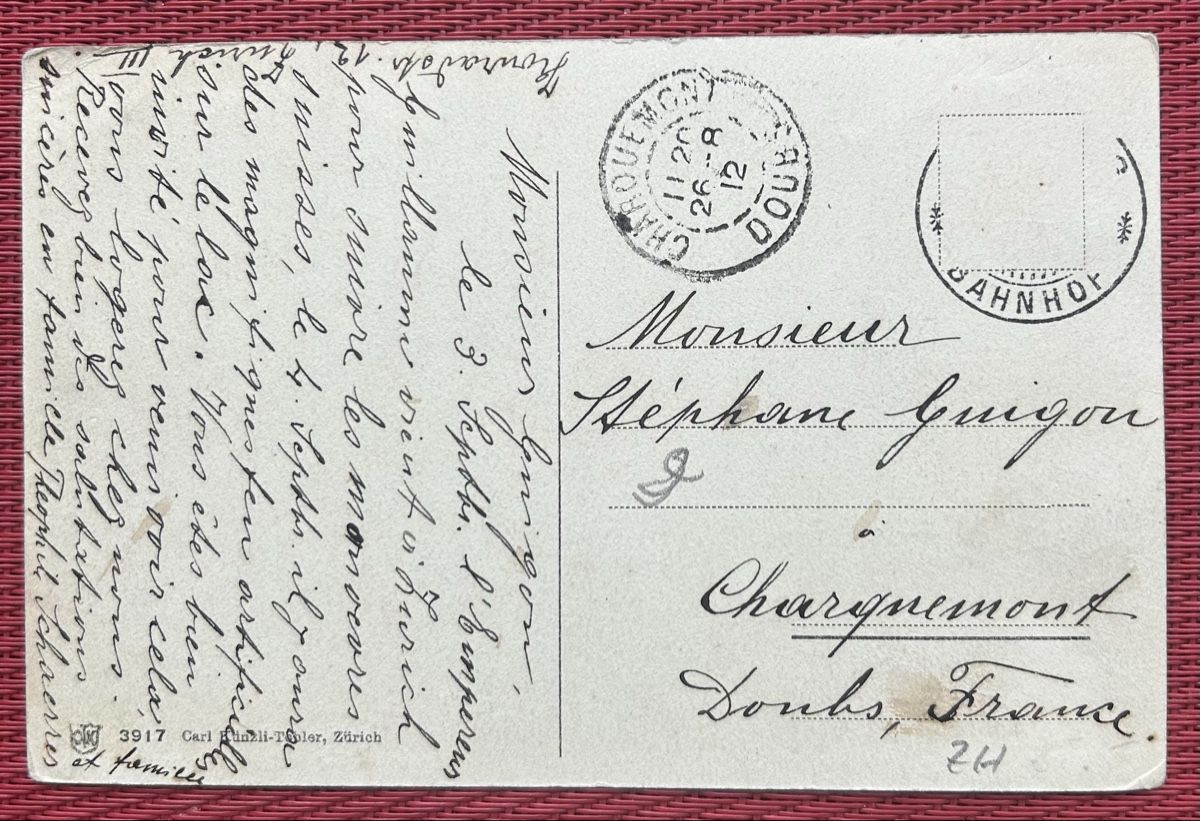 Monsieur Guigon,
le 3. Septbr. l'Empereur
Guillaume vient à Zurich
pour suivre les manoevres
suisses, le 4. Septbr. il y aura
des magnifiques feu artificiels
sur le lac. Vous êtes bien
invité pour venir voir cela,
vous logerez chez nous.
Recevez bien des salutations
sincères en famille Theophil Schaerres
et famille
Konradstr. 12
Zurich III
CHARQUEMONT
DOUBS
11 20
26 - 8
12
BAHNHOF
Monsieur
Stéphane Guigon
à
Charquemont
Doubs, France.
ZH
3917 Carl Künzli-Tobler, Zürich